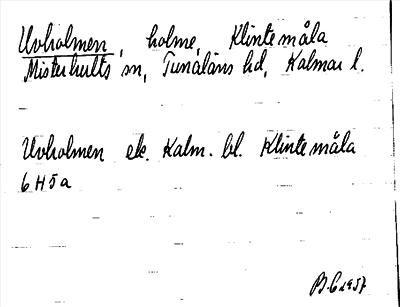 Uvholmen, holme, Klintemåla
Misterhults sn, Tunaläns hd, Kalmar l.
Uvholmen ek. Kalm. bl. Klintemåla
6H5a
B.G 1957